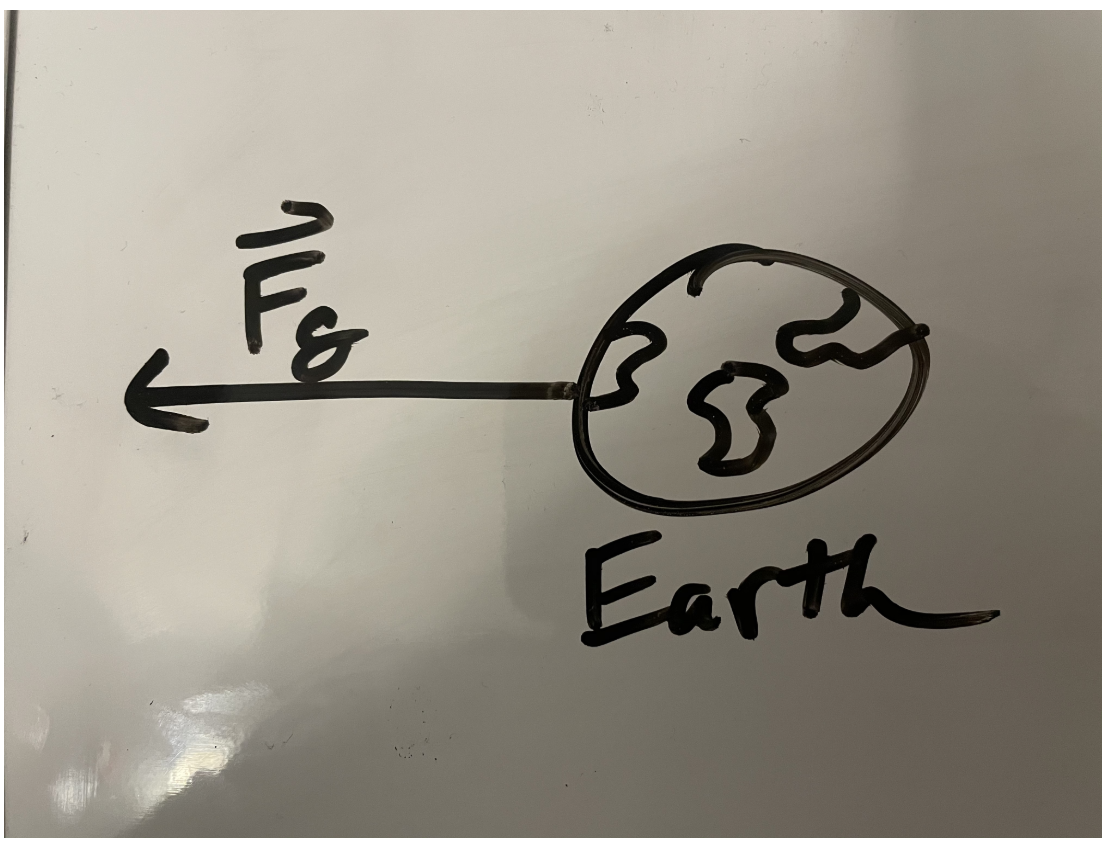 F⃗g
Earth